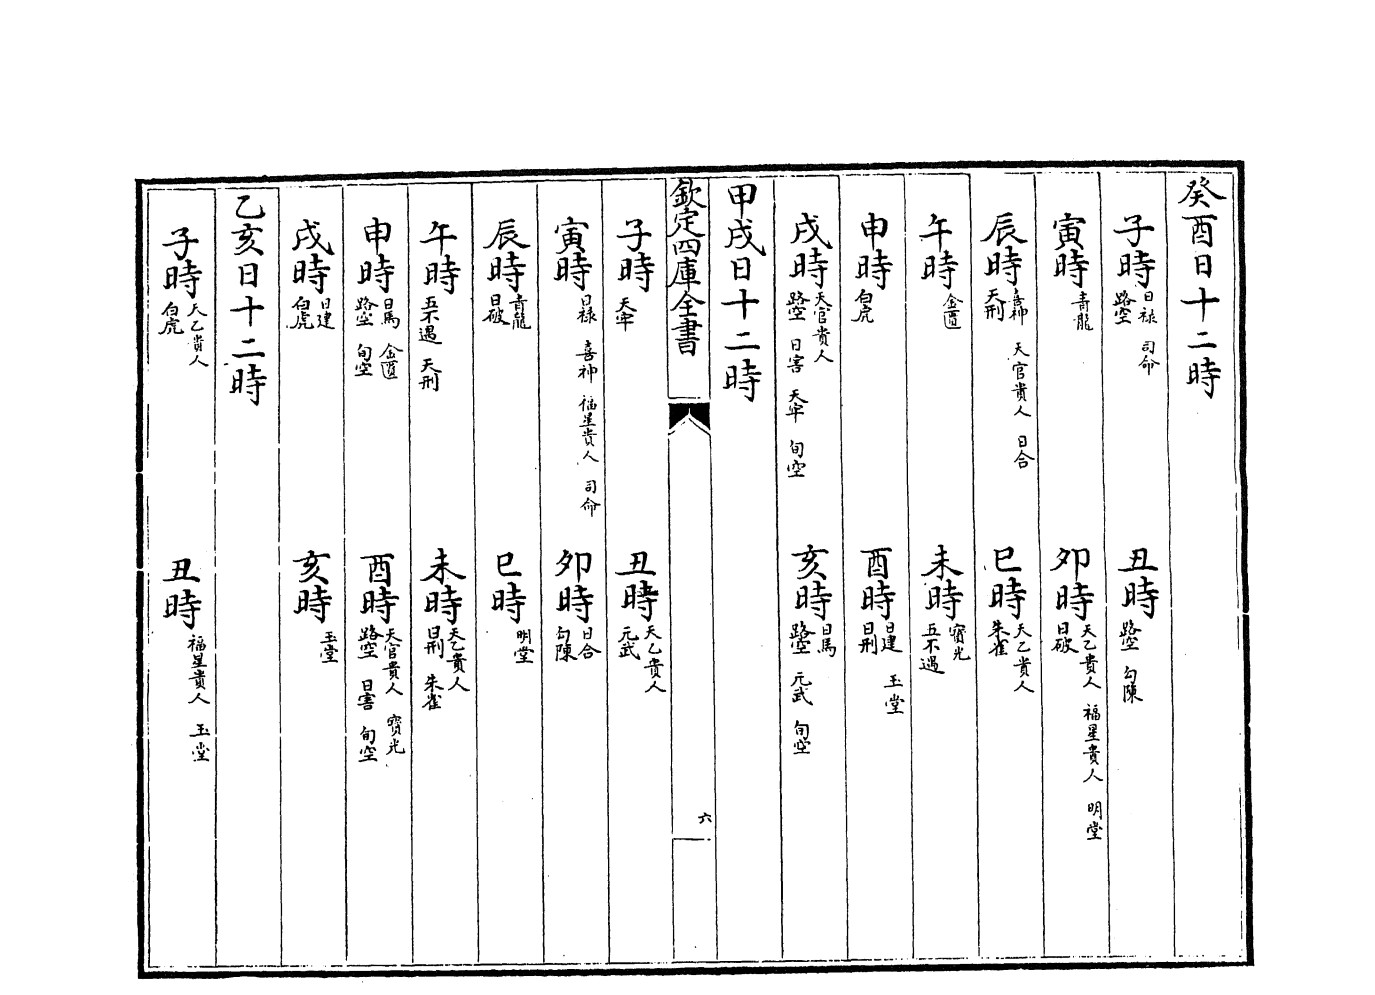 癸酉日十二時
子時 日祿 司命 路空 丑時 路空 勾陳
寅時 青龍 卯時 天乙貴人 福星貴人 明堂 日破
辰時 喜神 天官貴人 日合 天刑 巳時 天乙貴人 朱雀
午時 金匱 未時 寶光 五不遇
申時 白虎 酉時 日建 玉堂 日刑
戌時 天官貴人 路空 日害 天牢 旬空 亥時 日馬 路空 元武 旬空
甲戌日十二時
欽定四庫全書 六
子時 天牢 丑時 天乙貴人 元武
寅時 日祿 喜神 福星貴人 司命 卯時 日合 勾陳
辰時 青龍 日破 巳時 明堂
午時 五不遇 天刑 未時 天乙貴人 日刑 朱雀
申時 日馬 金匱 路空 旬空 酉時 天官貴人 寶光 路空 日害 旬空
戌時 日建 白虎 亥時 玉堂
乙亥日十二時
子時 天乙貴人 白虎 丑時 福星貴人 玉堂